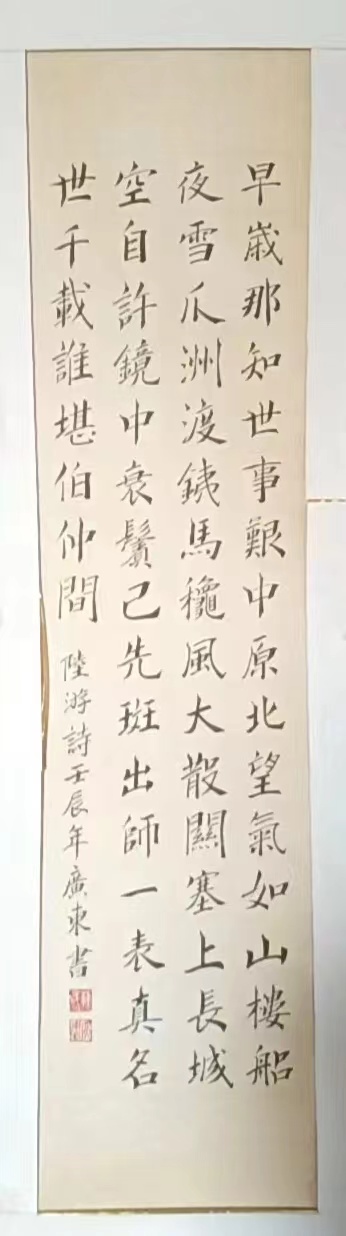 早歲那知世事艱中原北望氣如山樓船
夜雪瓜洲渡鐵馬穐風大散關塞上長城
空自許鏡中衰鬢已先斑出師一表真名
世千載誰堪伯仲間
陸游詩壬辰年廣東書